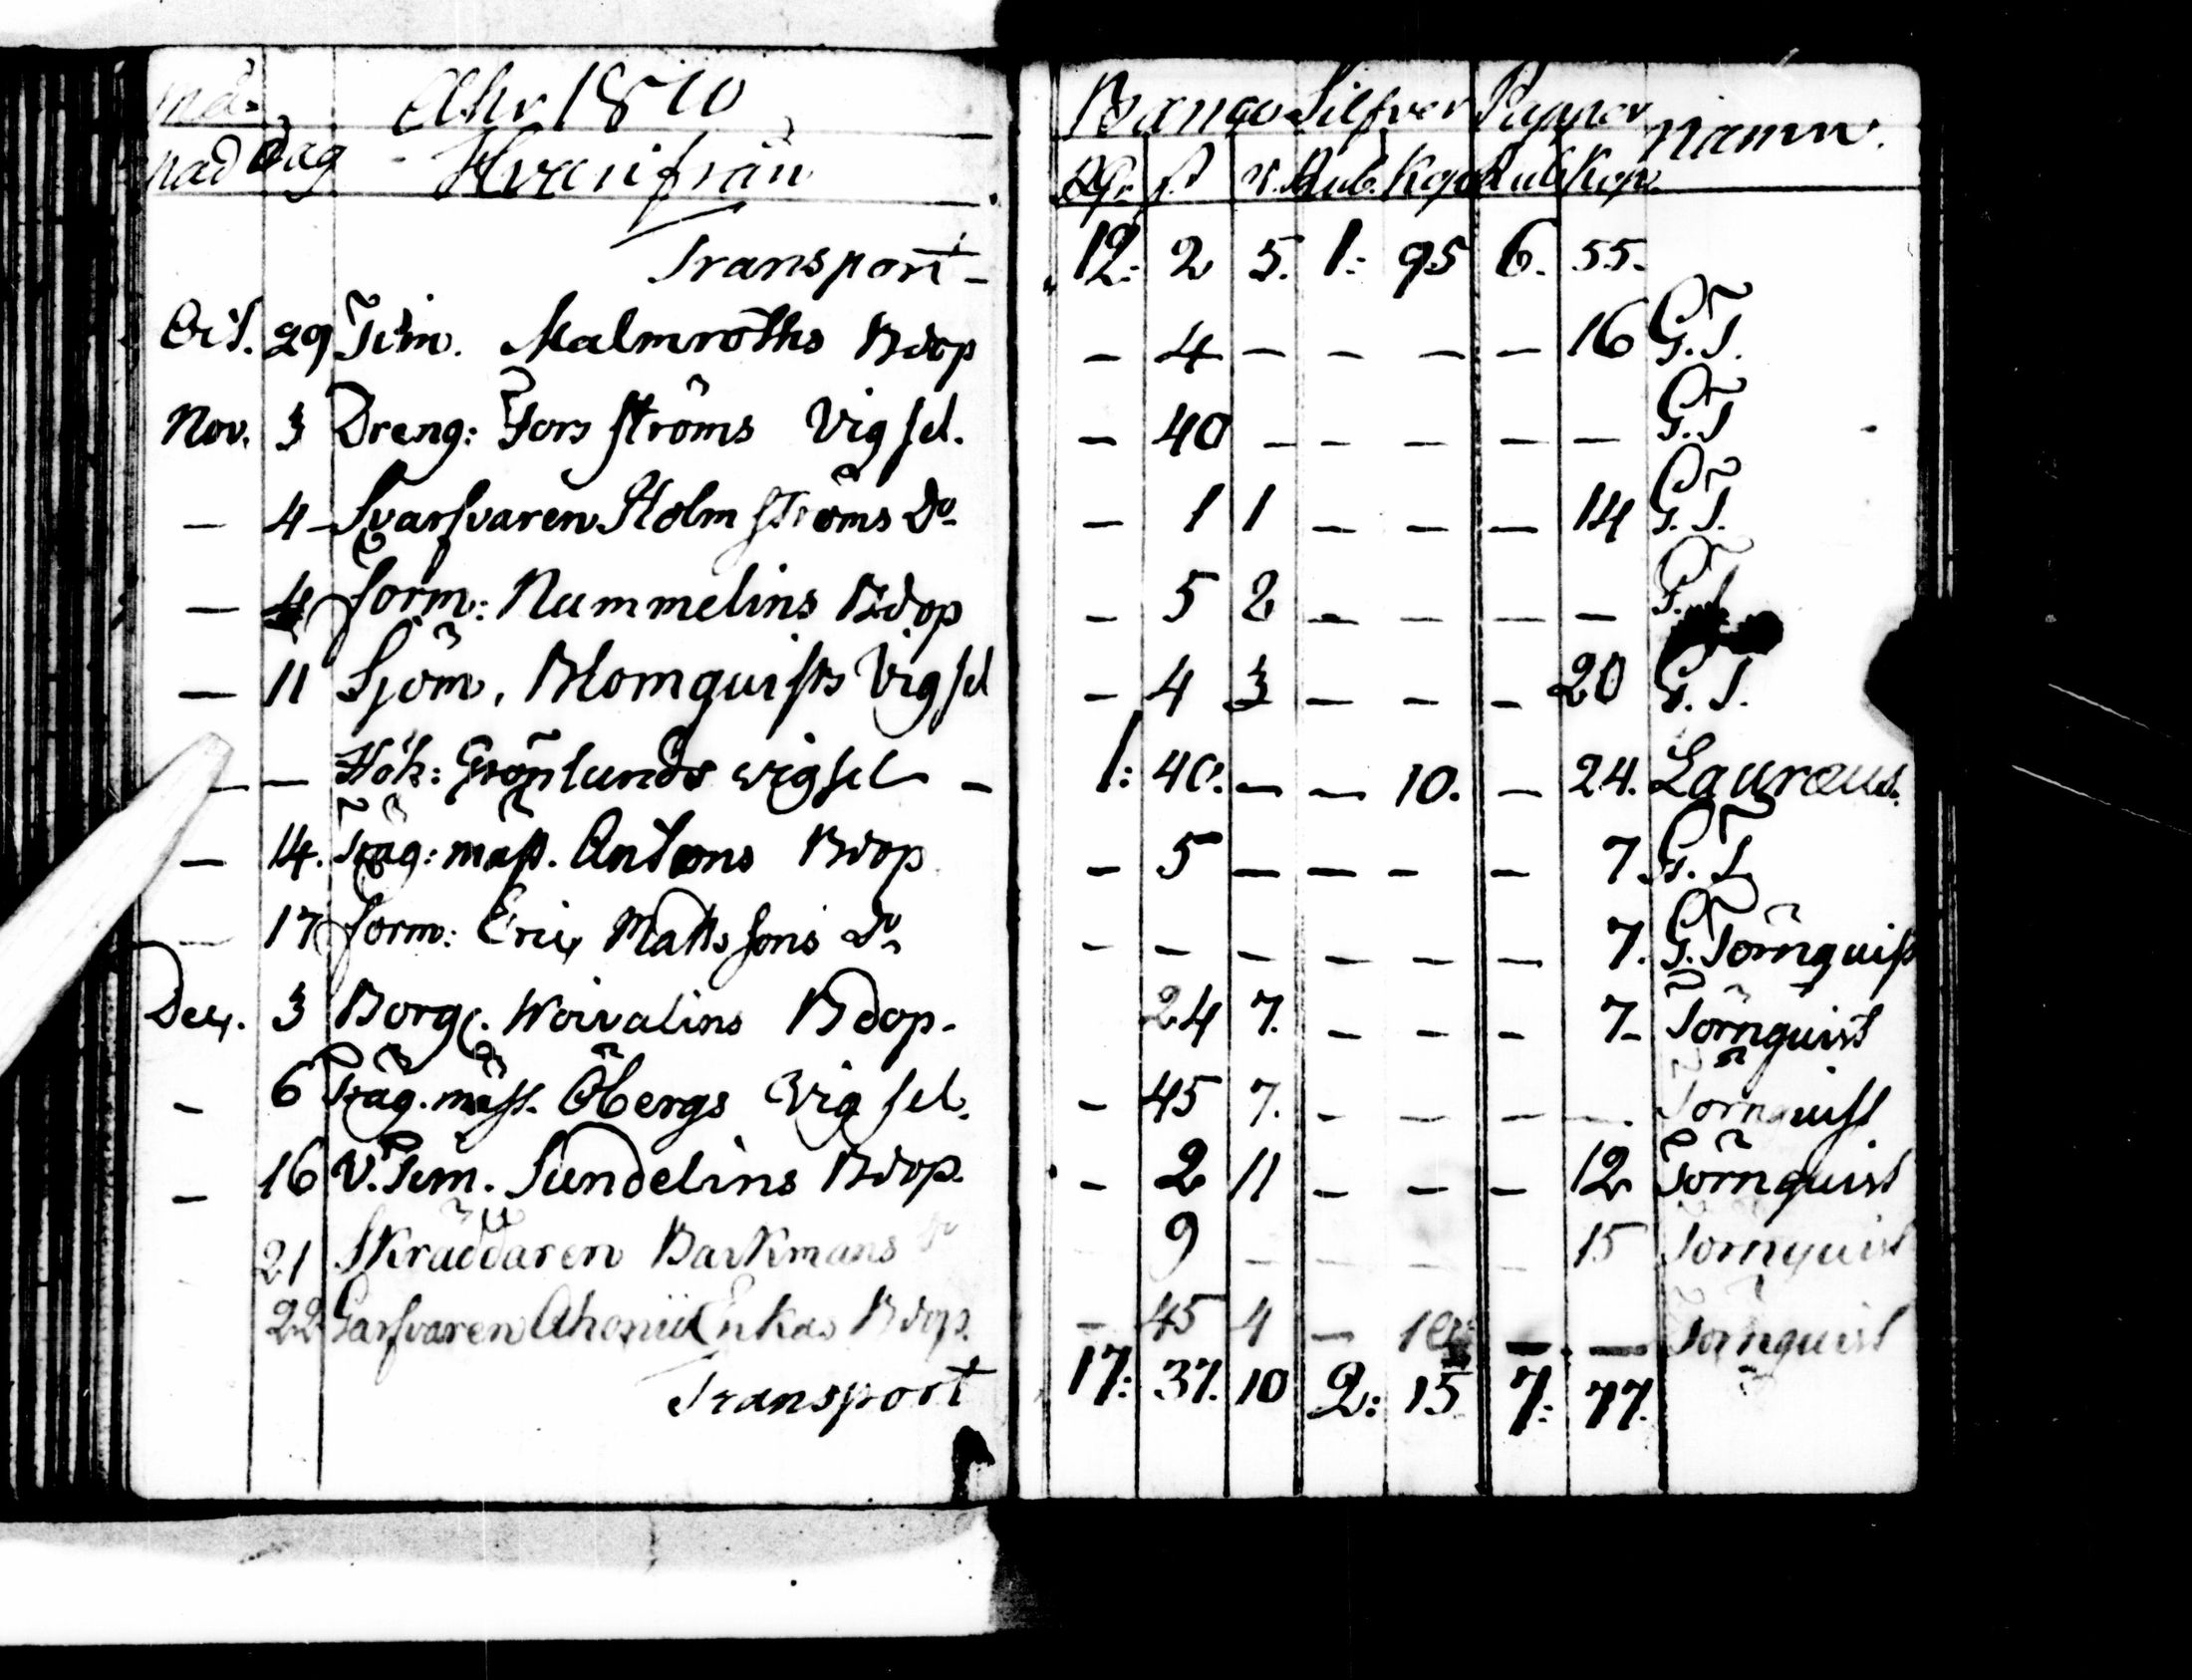 Må- Åhr 1810 Banco Silfver Papper Namn.
nad Dag Hvarifrån Rdr ß r. Rub. Kop Rub Kop.
Transport - 12: 2 5. 1: 95 6. 55.
Oct. 29 Tim. Malmroths Bdop - 4 - - - - 16 G.T.
Nov. 3 Dreng: Forsströms Vigsel. - 40 - - - - - G.T
- 4 Svarfvaren Holmströms Do - 1 1 - - - 14 G.T.
- 4 form: Nummelins Bdop - 5 2 - - - -
- 11 Sjöm. Blomquists Vigsel - 4 3 - - - 20 G.T.
- - Hök: Grönlunds vigsel - 1: 40. - - 10. - 24. Lauræus.
- 14. Träg: mäst. Antons Bdop - 5 - - - - 7 G.T.
- 17 form: Eric Matts sons Do - - - - - - 7. G. Törnquist
Dec. 3 Borg. Woivalins Bdop. 24 7. - - - 7- Törnquist
- 6 Träg. mäst. Öbergs Vigsel. - 45 7. - - - - Törnquist
- 16 V. Tim. Sundelins Bdop. - 2 11 - - - 12 Törnquist
21 Skräddaren Barkmans Do 9 - - - - 15 Törnquist
22 Garfvaren Enkas Bdop. - 45 4 - 10 - - Törnquist
Transport 17: 37. 10 2: 15 7: 77.